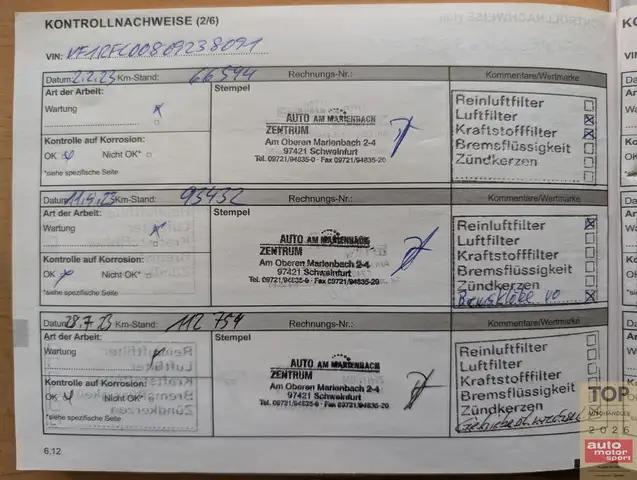 KONTROLLNACHWEISE (2/6)
VIN: VF1RFC00809238091
Datum: 2.2.23 Km-Stand: 66594 Rechnungs-Nr.: Kommentare/Wertmarke
Art der Arbeit: Stempel
Wartung
Kontrolle auf Korrosion:
OK Nicht OK*
*siehe spezifische Seite
AUTO AM MARIENBACH
ZENTRUM
Am Oberen Marienbach 2-4
97421 Schweinfurt
Tel. 09721/94835-0 · Fax 09721/94835-20
Reinluftfilter
Luftfilter
Kraftstofffilter
Bremsflüssigkeit
Zündkerzen
Datum: 11.4.23 Km-Stand: 93432 Rechnungs-Nr.: Kommentare/Wertmarke
Art der Arbeit: Stempel
Wartung
Kontrolle auf Korrosion:
OK Nicht OK*
*siehe spezifische Seite
AUTO AM MARIENBACH
ZENTRUM
Am Oberen Marienbach 2-4
97421 Schweinfurt
Tel. 09721/94835-0 · Fax 09721/94835-20
Reinluftfilter
Luftfilter
Kraftstofffilter
Bremsflüssigkeit
Zündkerzen
Datum: 28.7.23 Km-Stand: 112 754 Rechnungs-Nr.: Kommentare/Wertmarke
Art der Arbeit: Stempel
Wartung
Kontrolle auf Korrosion:
OK Nicht OK*
*siehe spezifische Seite
AUTO AM MARIENBACH
ZENTRUM
Am Oberen Marienbach 2-4
97421 Schweinfurt
Tel. 09721/94835-0 · Fax 09721/94835-20
Reinluftfilter
Luftfilter
Kraftstofffilter
Bremsflüssigkeit
Zündkerzen
6.12
TOP
AUTOHÄNDLER
2026
auto
motor
sport